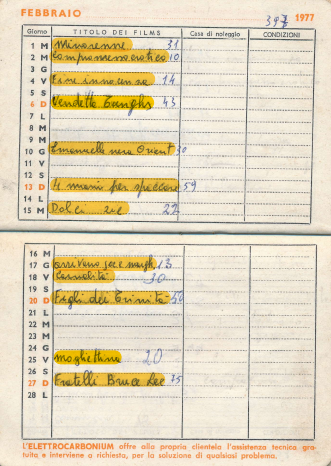 FEBBRAIO 397 1977
Giorno TITOLO DEI FILMS Casa di noleggio CONDIZIONI
1 M Minorenne 31
2 M Compromesso erotico 10
3 G
4 V Fine innocenza 14
5 S
6 D Vendetta 43
7 L
8 M
9 M
10 G Emanuelle nera Orient 30
11 V
12 S
13 D 4 mani per spaccare 59
14 L
15 M Dolci 22
16 M
17 G arrivano joe e margh 13
18 V 30
19 S
20 D Figli dei Trinità 50
21 L
22 M
23 M
24 G
25 V moghettina 20
26 S
27 D Fratelli Bruce Lee 75
28 L
L'ELETTROCARBONIUM offre alla propria clientela l'assistenza tecnica gra-
tuita e interviene a richiesta, per la soluzione di qualsiasi problema.